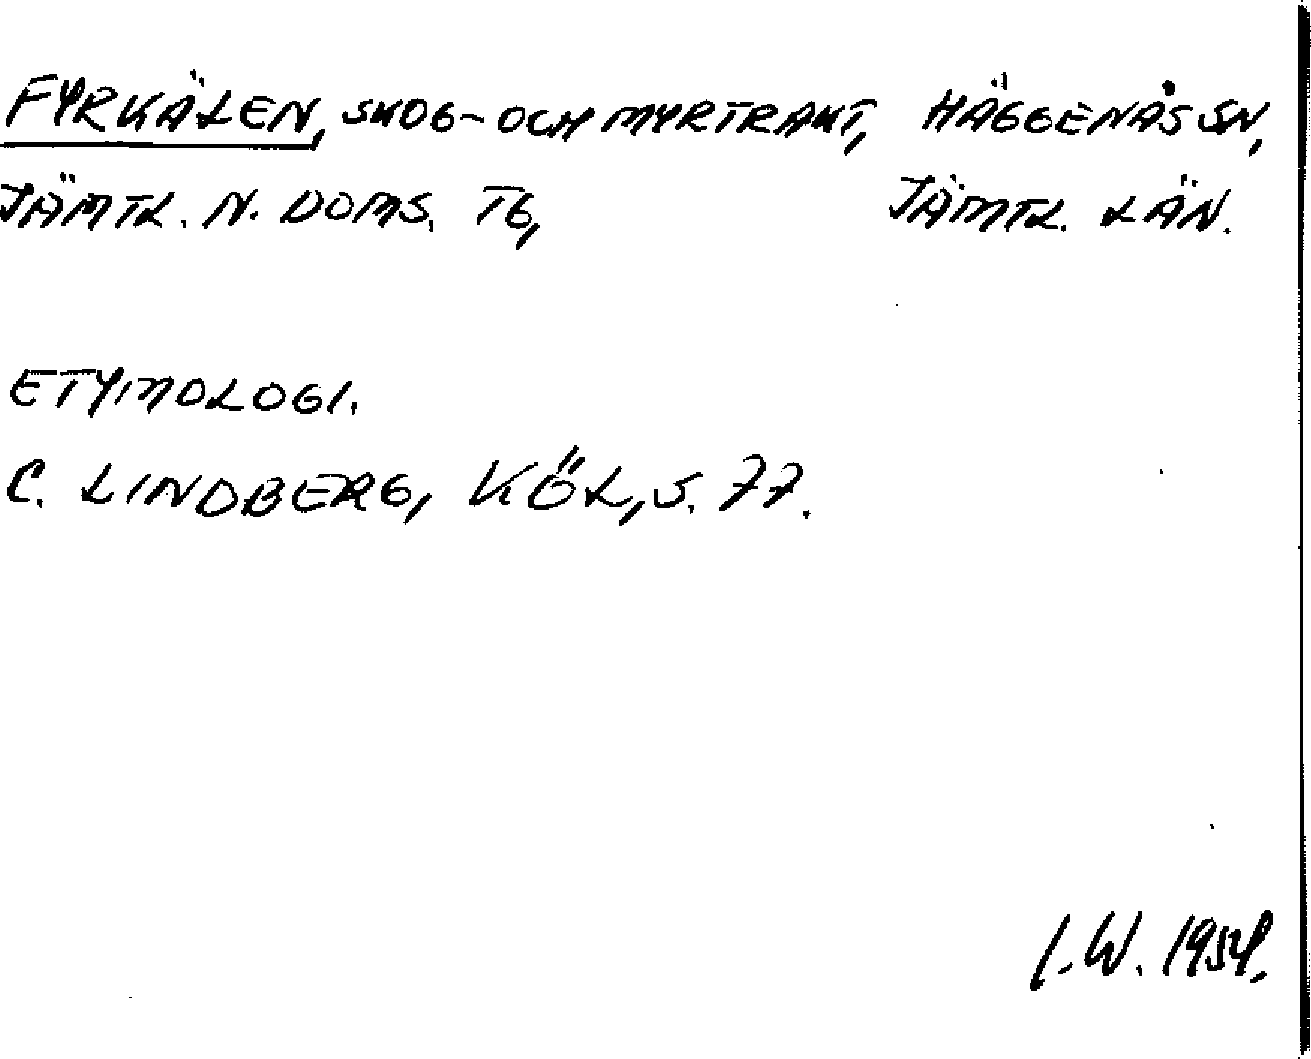 FYRKÄLEN, SKOG- OCH MYRTRAKT, HÄGGENÅS SN,
JÄMTL. N. DOMS. TG, JÄMTL. LÄN.
ETYMOLOGI.
C. LINDBERG, KÖL, S. 77.
I.W. 1954.